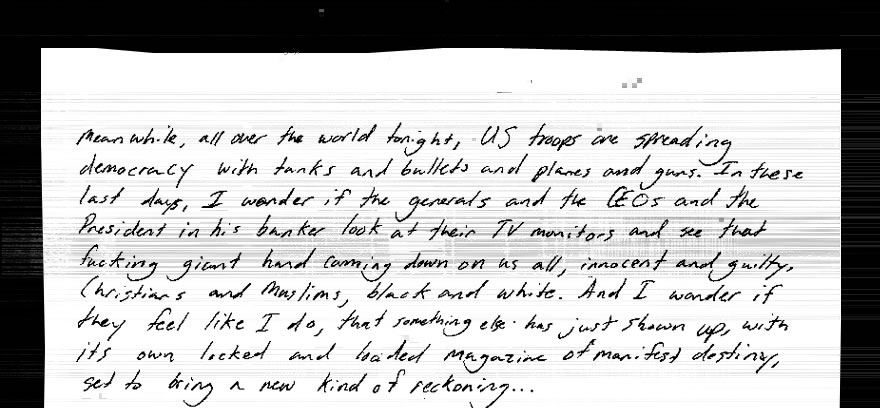 Meanwhile, all over the world tonight, US troops are spreading
democracy with tanks and bullets and planes and guns. In these
last days, I wonder if the generals and the CEOs and the
President in his bunker look at their TV monitors and see that
fucking giant hand coming down on us all, innocent and guilty,
Christians and Muslims, black and white. And I wonder if
they feel like I do, that something else has just shown up, with
its own locked and loaded magazine of manifest destiny,
set to bring a new kind of reckoning...